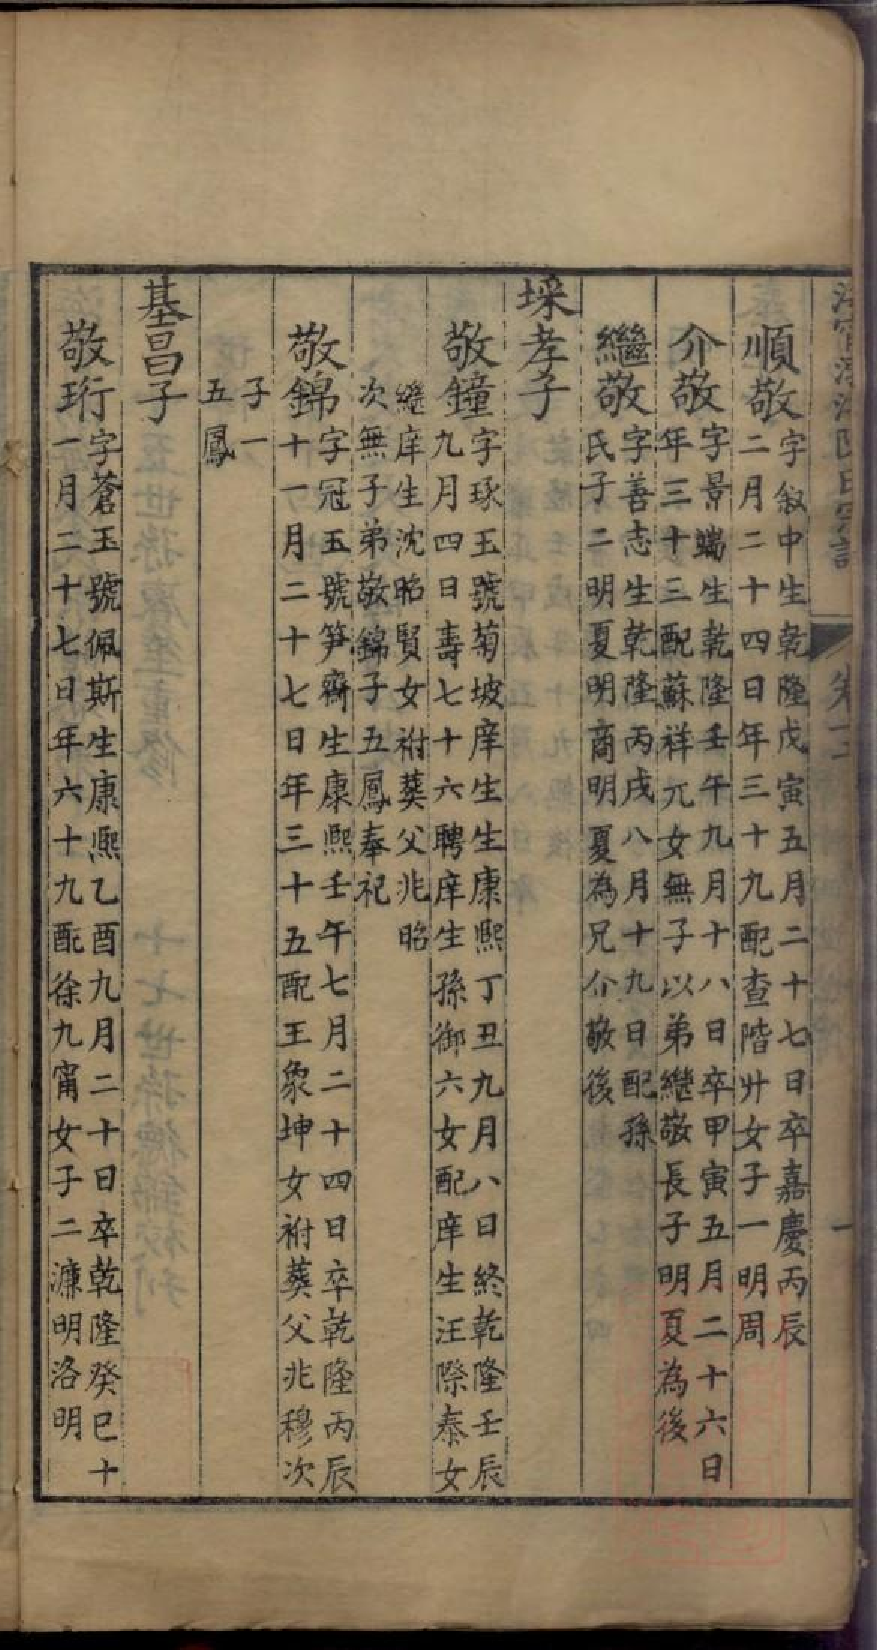 順敬
字叙中生乾隆戊寅五月二十七日卒嘉慶丙辰
二月二十四日年三十九配查階廾女子一明周
介敬
字景端生乾隆壬午九月十八日卒甲寅五月二十六日
年三十三配蘇祥亢女無子以弟繼敬長子明夏為後
繼敬
字善志生乾隆丙戌八月十九日配孫
氏子二明夏明商明夏為兄介敬後
埰孝子
敬鐘
字琢玉號菊坡庠生生康熙丁丑九月八日終乾隆壬辰
九月四日壽七十六聘庠生孫御六女配庠生汪際泰女
繼庠生沈昭賢女祔葬父兆昭
次無子弟敬錦子五鳳奉祀
敬錦
字冠五號筍齋生康熙壬午七月二十四日卒乾隆丙辰
十一月二十七日年三十五配王象坤女祔葬父兆穆次
子一
五鳳
基昌子
敬珩
字蒼玉號佩斯生康熙乙酉九月二十日卒乾隆癸巳十
一月二十七日年六十九配徐九甯女子二濂明洛明